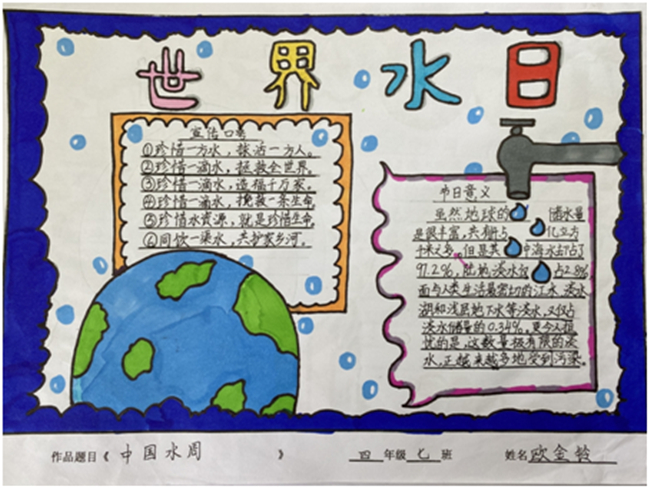 世界水日
宣传口号
①珍惜一方水，保活一方人。
②珍惜一滴水，拯救全世界。
③珍惜一滴水，造福千万家。
④珍惜一滴水，挽救一条生命
⑤珍惜水资源，就是珍惜生命
⑥同饮一渠水，共护家乡河。
节日意义
虽然地球的 储水量
是很丰富，共有 亿立方
千米之多。但是其中海水却占了
97.2%，陆地淡水 占2.8%
而与人类生活最密切的江水 淡水
湖和浅层地下水等淡水，又仅占
淡水储量的0.34%，更令人担
忧的是，这数量极有限的淡
水，正越来越多地受到污染。
作品题目《 中国水周 》 四年级七班 姓名 欧金铃